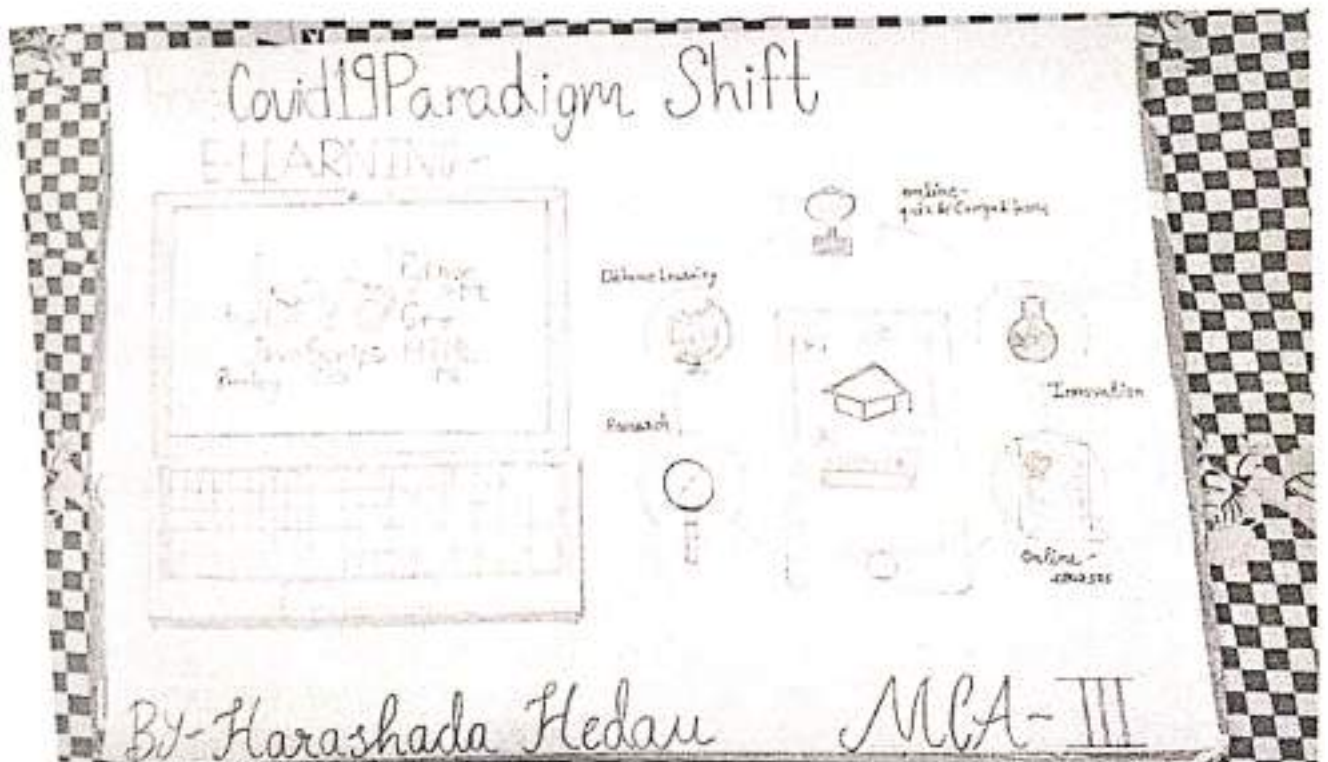 Covid19 Paradigm Shift
E-LEARNING-
online-
quiz & Competitions
Distance Learning
C++
JavaScript
Innovation
Research
Online-
courses
BY-Harashada Hedau
MCA-III